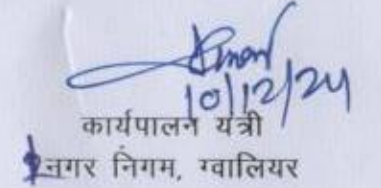 10/12/24
कार्यपालन यंत्री
नगर निगम, ग्वालियर